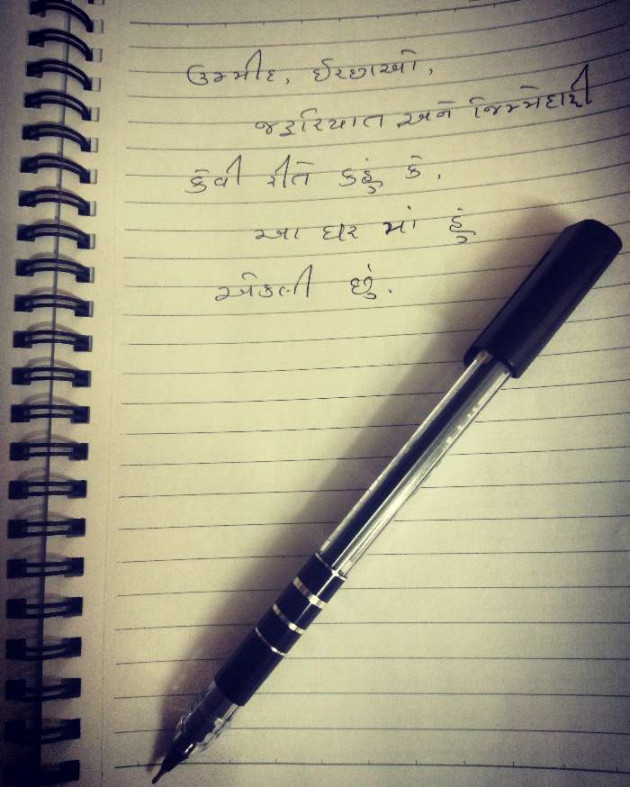 ઉમ્મીદ, ઈચ્છાઓ,
જરૂરિયાત અને જિમ્મેદારી
કેવી રીતે કહું કે,
આ ઘર માં હું
એકલી છું.